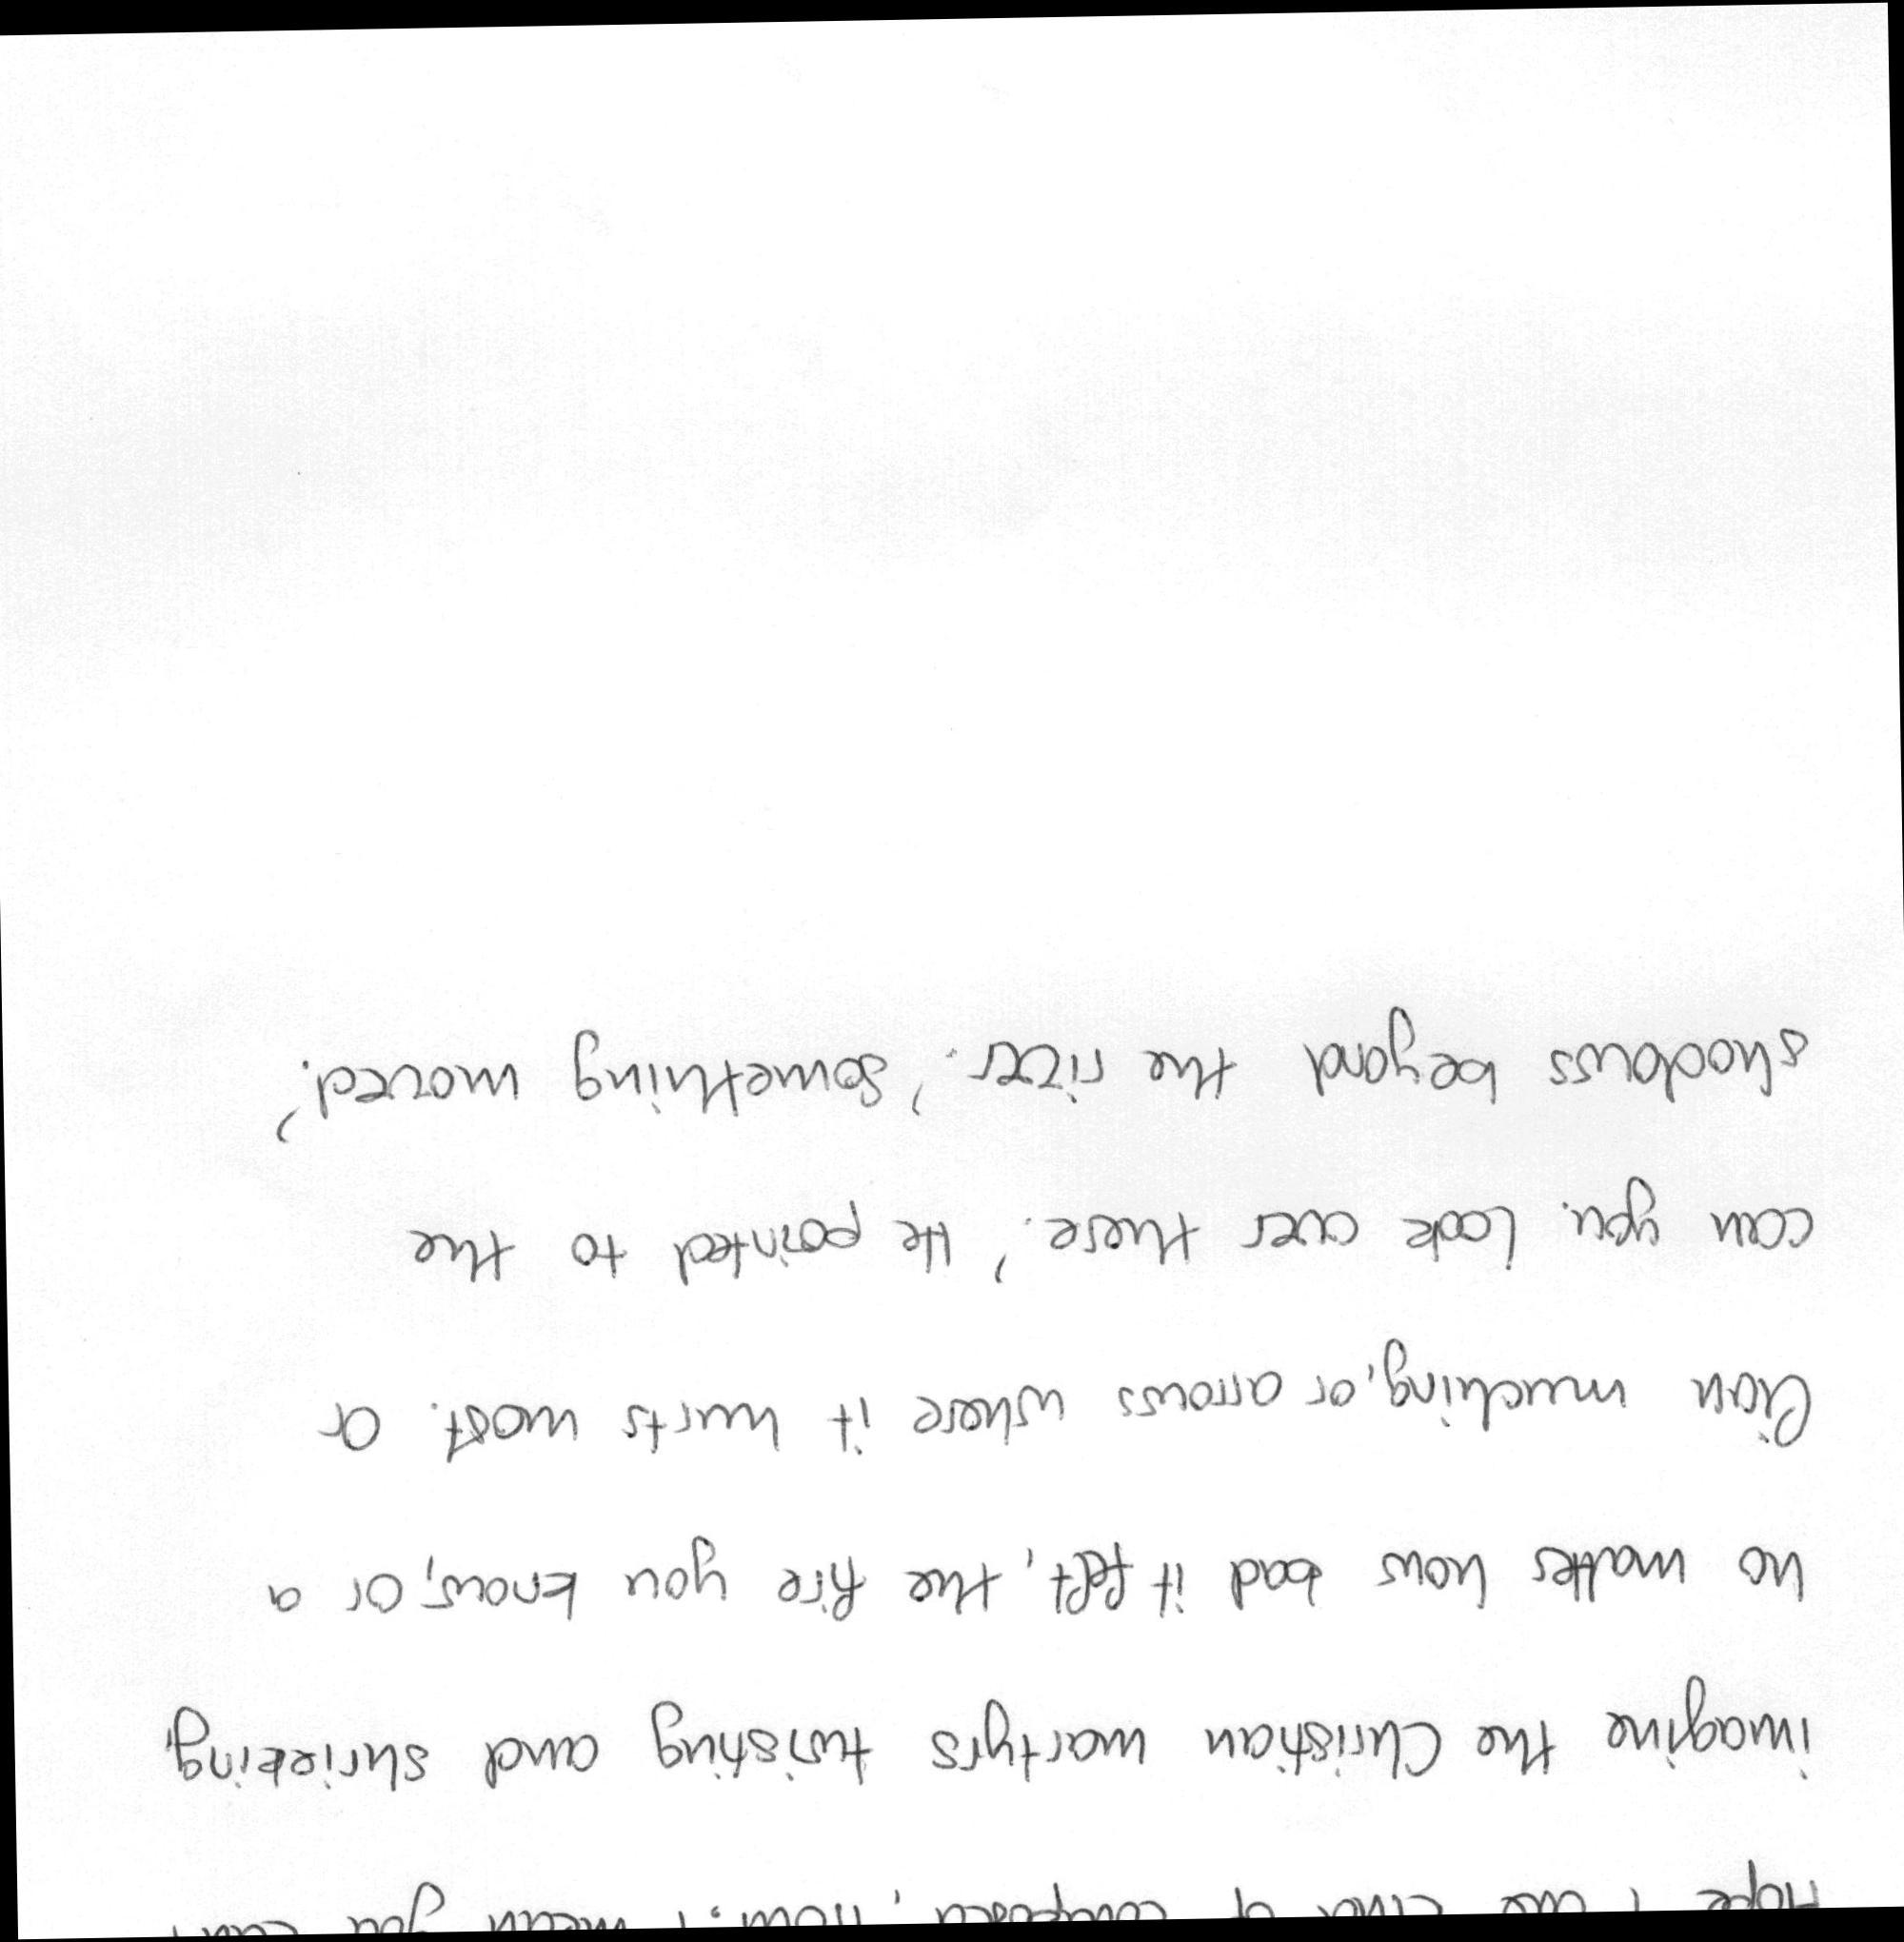 Hope I am kind of composed, now. I mean you can't
imagine the Christian martyrs twisting and shrieking,
no matter how bad it felt, the fire you know, or a
lion munching, or arrows where it hurts most. Or
can you. Look over there.' He pointed to the
shadows beyond the river. 'Something moved.'